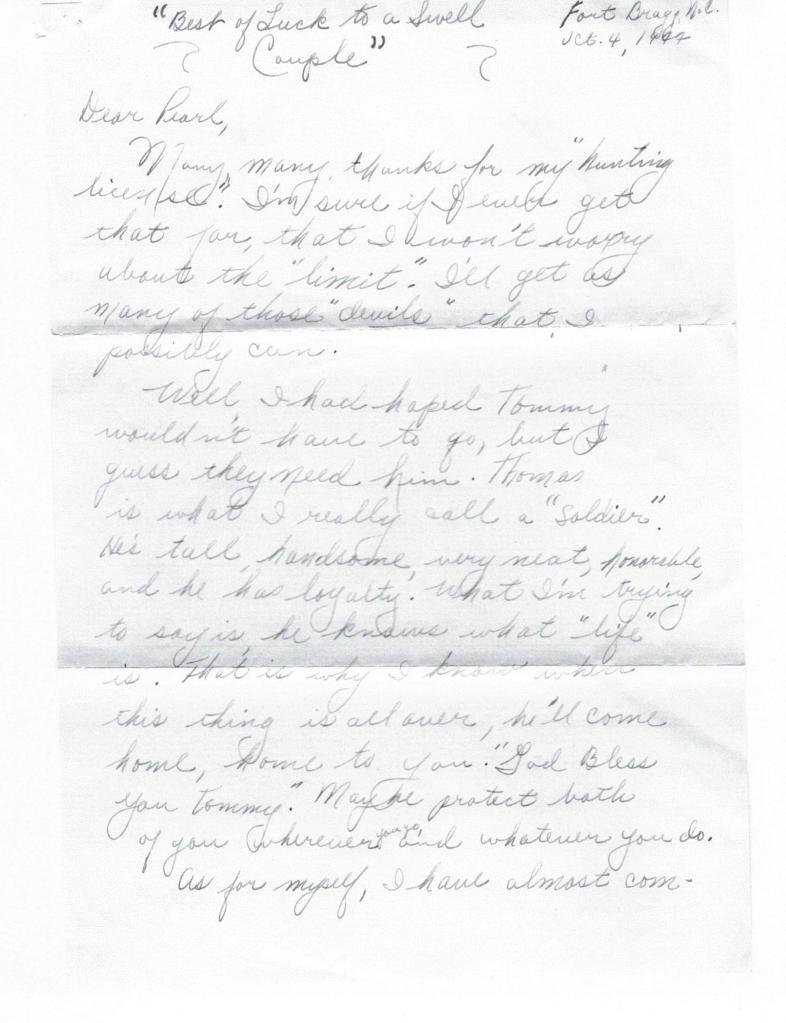 "Best of Luck to a Swell
Couple"
Fort Bragg, N.C.
Oct. 4, 1944
Dear Pearl,
Many, many, thanks for my "hunting
license". I'm sure if I ever get
that far, that I won't worry
about the "limit". I'll get as
many of those "devils" that I
possibly can.
Well I had hoped Tommy
wouldn't have to go, but I
guess they need him. Thomas
is what I really call a "soldier".
He's tall, handsome, very neat, honorable,
and he has loyalty. What I'm trying
to say is, he knows what "life"
is. That is why I know when
this thing is all over, he'll come
home, home to you. "God Bless
You Tommy". May he protect both
of you wherever you go and whatever you do.
As for myself, I have almost com-